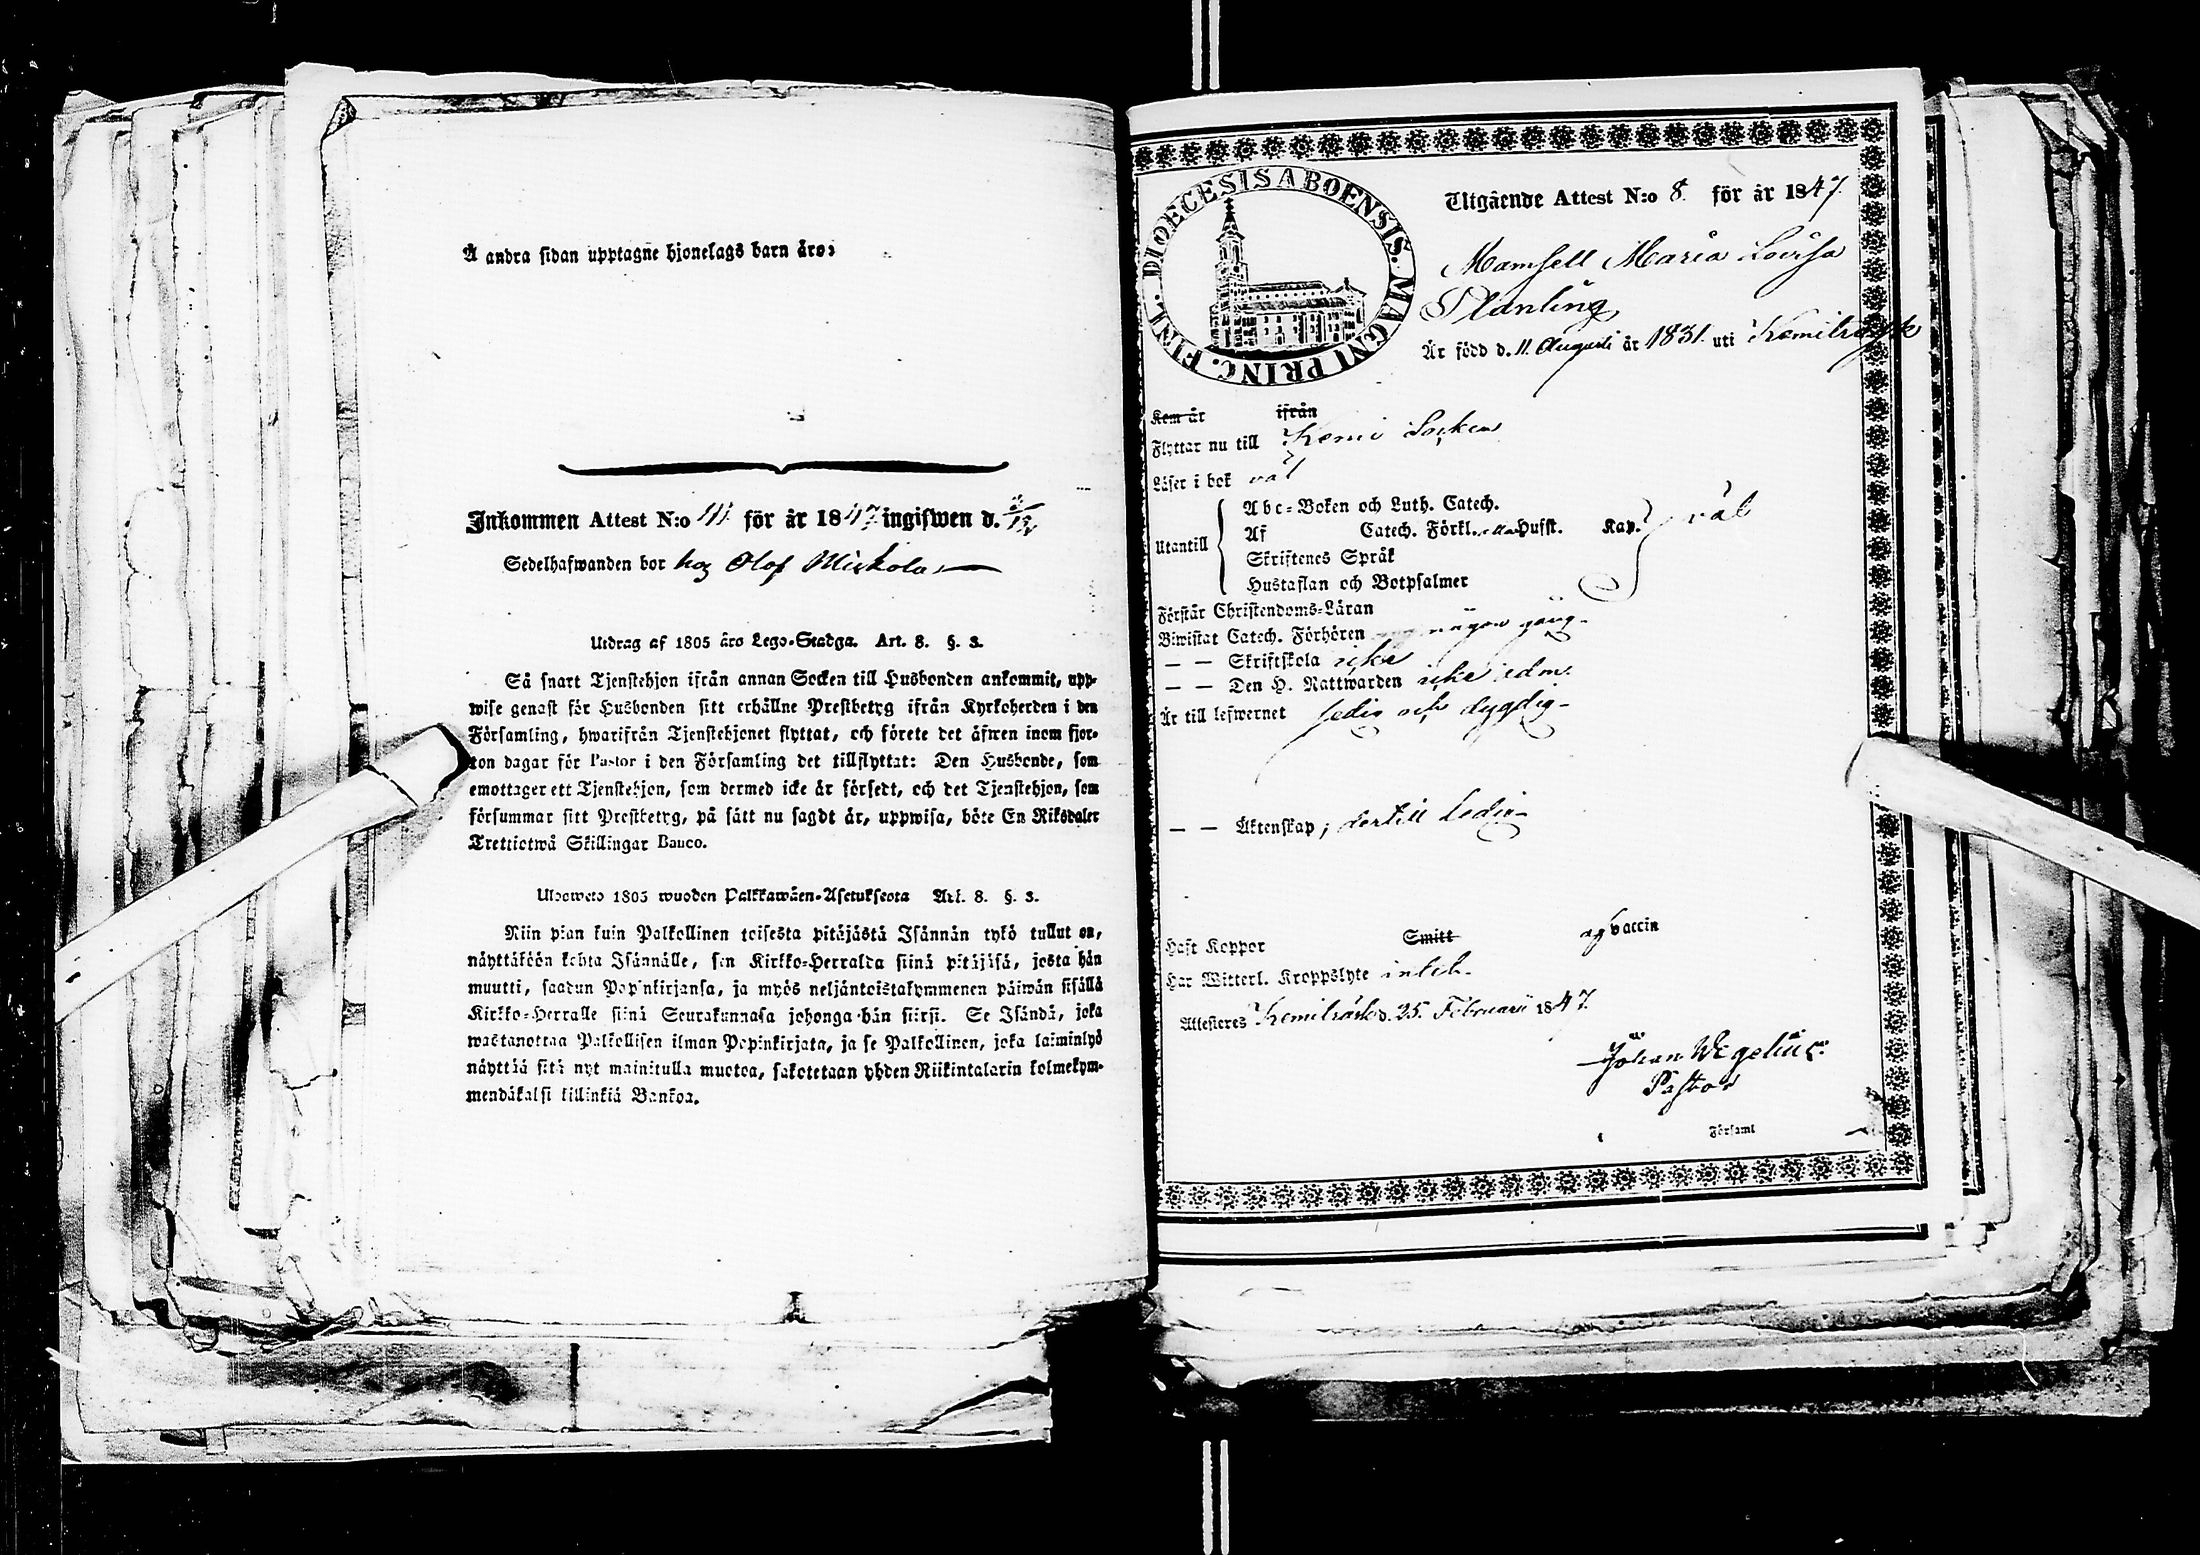 Å andra sidan upptagne hjonelags barn äro:
Inkommen Attest N:o för år 1847 ingifwen d.
Sedelhafwanden bor hos Olof Mickola
Utdrag af 1805 års Lego-Stadga. Art. 8. §. 3.
Så snart Tjenstehjon ifrån annan Socken till Husbonden ankommit, upp-
wise genast för Husbonden sitt erhållne Prestbetyg ifrån Kyrkoherden i den
Församling, hwarifrån Tjenstehjonet flyttat, och förete det äfwen inom fjor-
ton dagar för Pastor i den Församling det tillflyttat: Den Husbonde, som
emottager ett Tjenstehjon, som dermed icke är försedt, och det Tjenstehjon, som
försummar sitt Prestbetyg, på sätt nu sagdt är, uppwisa, böte En Riksdaler
Trettiotwå Skillingar Banco.
Ulosweto 1805 wuoden Palkkawäen-Asetuksesta Art. 8. §. 3.
Niin pian kuin Palkollinen toisesta pitäjästä Isännän tykö tullut on,
näyttäköön kohta Isännälle, sen Kirkko-Herralda siinä pitäjäsä, josta hän
muutti, saadun Papinkirjansa, ja myös neljäntoistakymmenen päiwän sisällä
Kirkko-Herralle siinä Seurakunnasa johonga hän siirsi. Se Isändä, joka
wastanottaa Palkollisen ilman Papinkirjata, ja se Palkollinen, joka laiminlyö
näyttää sitä nyt mainitulla muotoa, sakotetaan yhden Riikintalarin kolmekym-
mendäkaksi killinkiä Bankoa.
DIOECESIS ABOENSIS. MAGNI PRINC. FINL.
Utgående Attest N:o 8. för år 1847.
Mamsell Maria Lovisa
Planting
Är född d. 11 Augusti år 1831. uti Kemiträsk
Kom år ifrån
Flyttar nu till Kemi Socken
Läser i bok väl
Utantill
Abc-Boken och Luth. Catech.
Af Catech. Förkl. Hufst. Kap. väl
Skriftenes Språk
Hustaflan och Botpsalmer
Förstår Christendoms-Läran
Biwistat Catech. Förhören någon gång.
— — Skriftskola icke
— — Den H. Nattwarden icke adm.
Är till lefwernet sedig och dygdig.
— — Äktenskap; dertill Ledig.
Haft Koppor Smitt af vaccin
Har Witterl. Kroppslyte intet.
Attesteres Kemiträsk d. 25. Februarii 1847.
Johan Wegelius.
Pastor
Församl